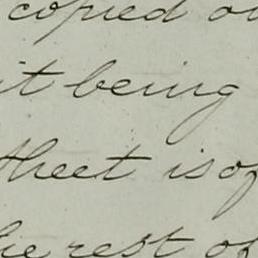 copied o
it being
sheet is of
he rest of